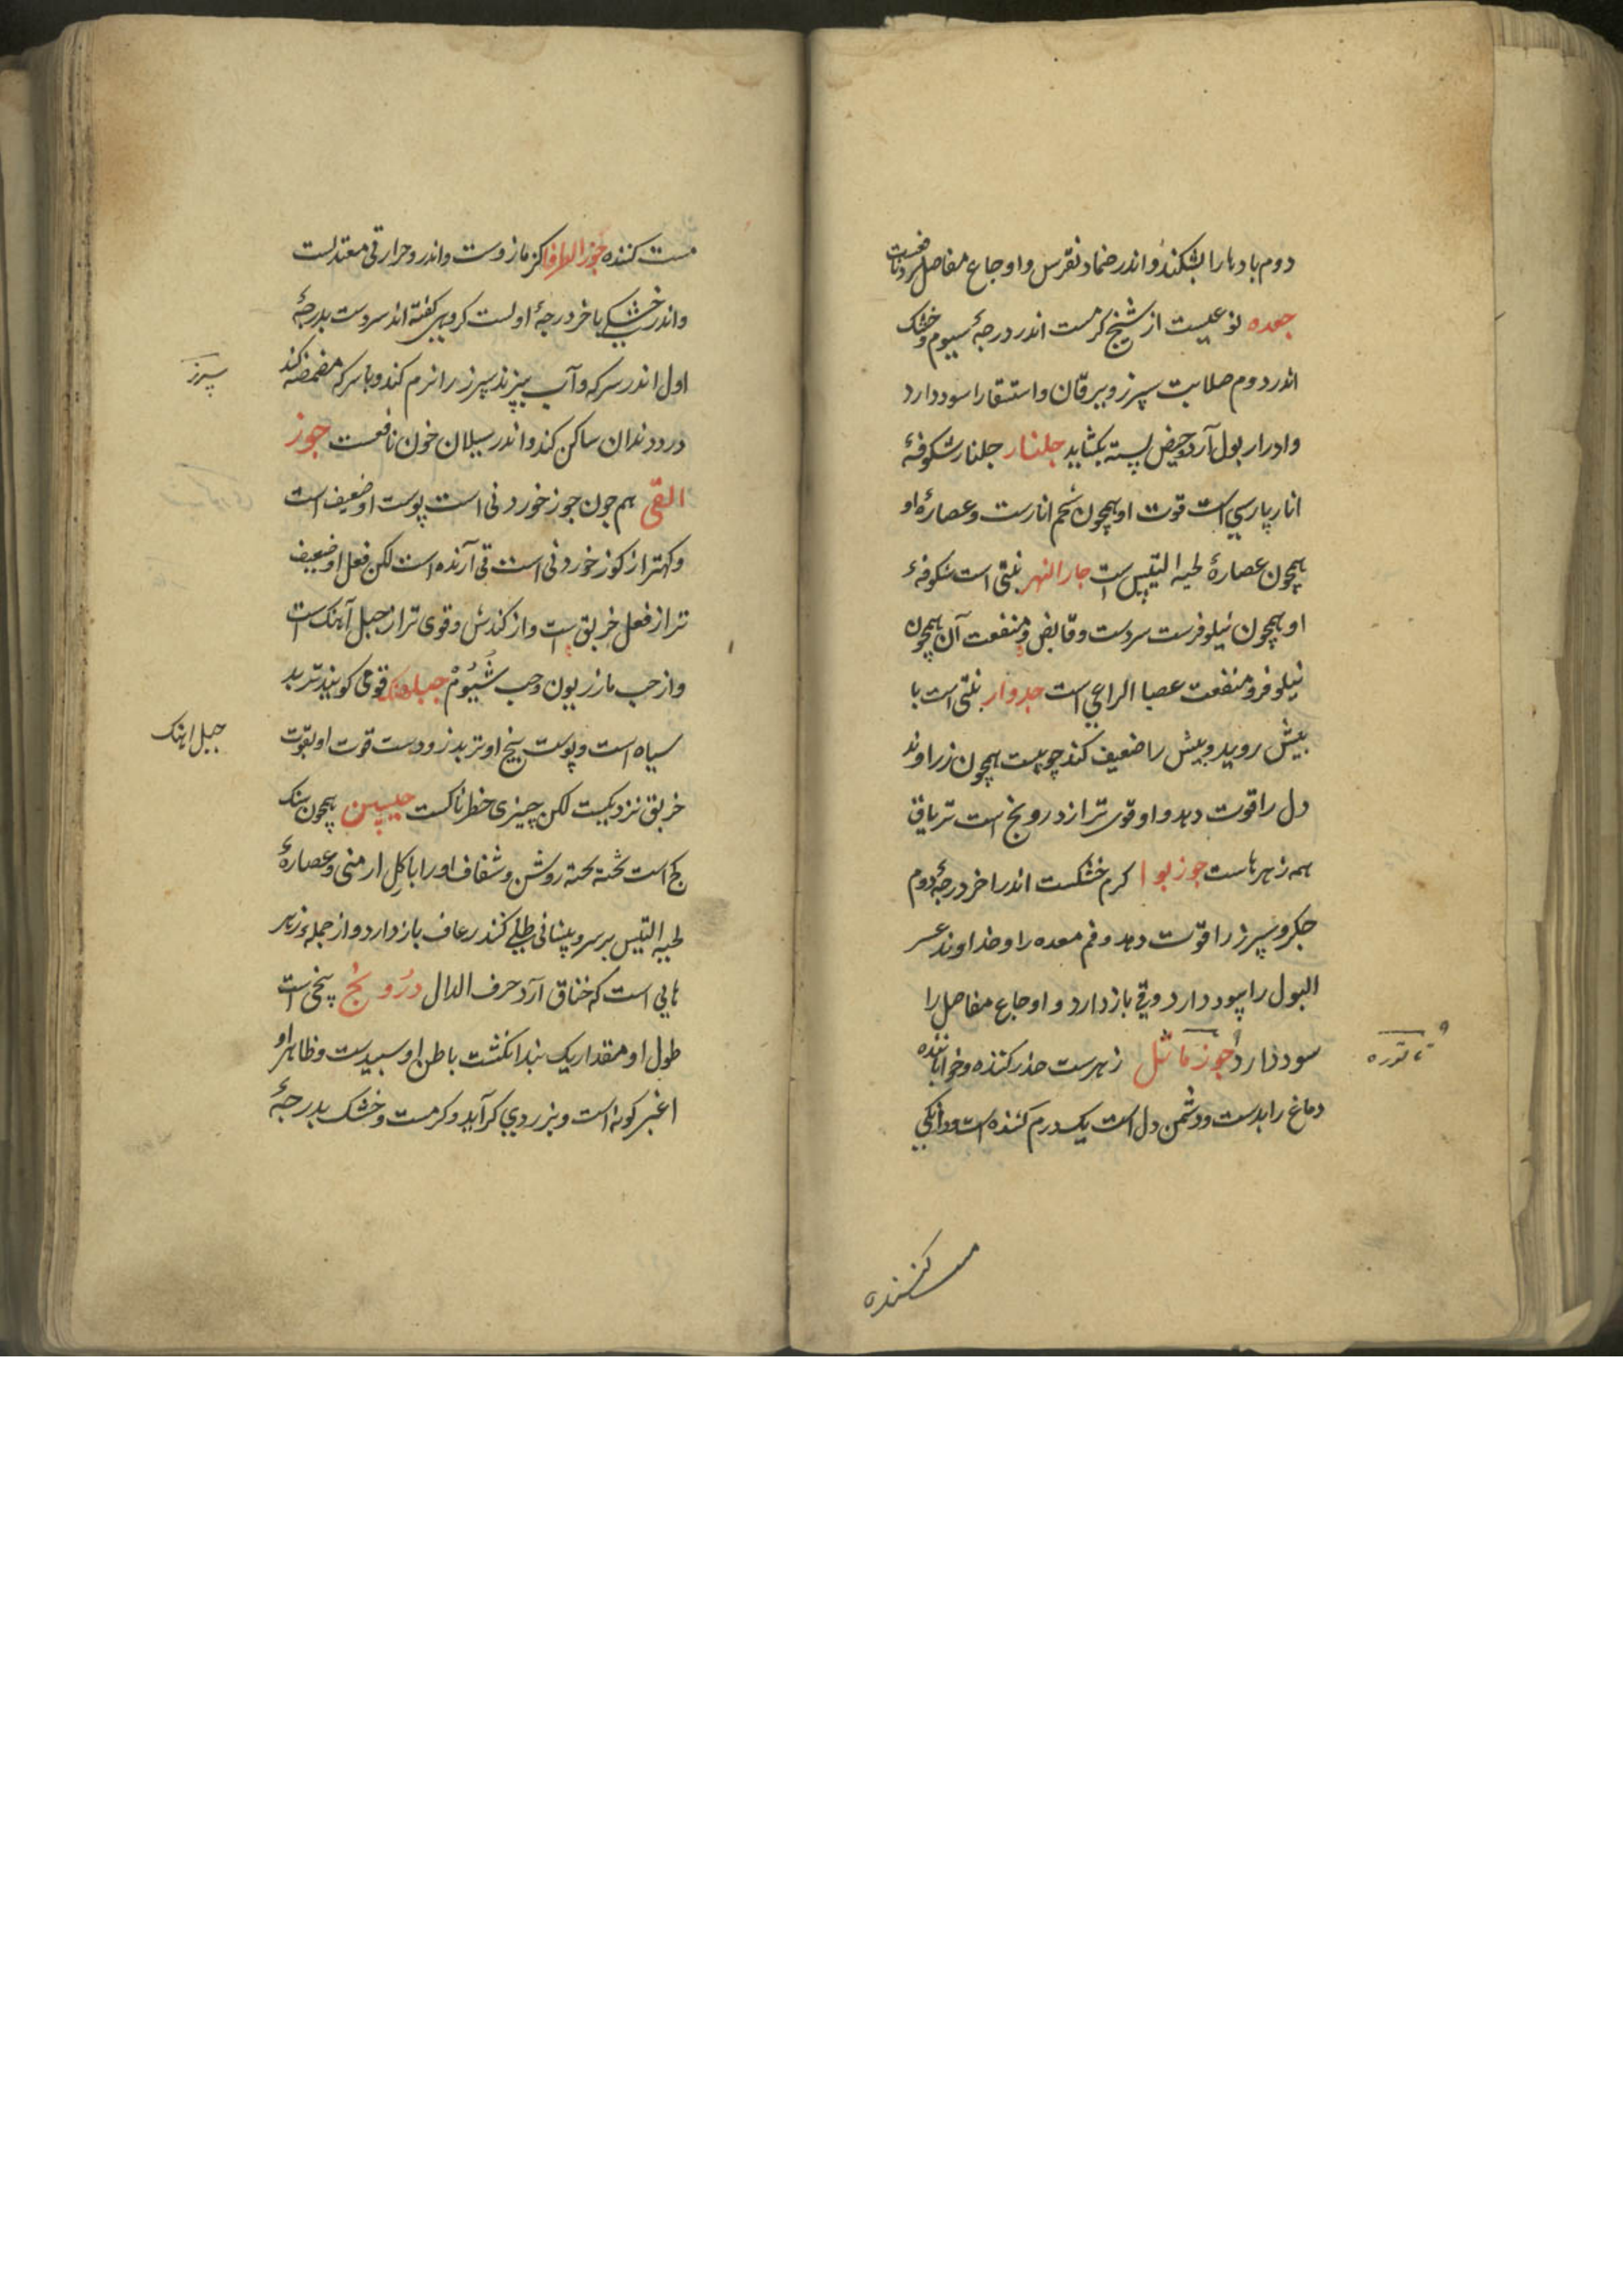 دوم بادها را بشکند و اندر ضماد نقرس و اوجاع مفاصل سردنافعست
جعده نوعیست از شیخ کرمست اندر درجهٔ سیوم و خشک
اندر دوم صلابت سپرز و یرقان و استسقا را سود دارد
و ادرار بول آرد و حیض بسته بکشاید جلنار جلنار شکوفهٔ
انار پارسی است قوت او همچون شحم انارست و عصارهٔ او
همچون عصارهٔ لحیه التیس است جار النهر نبتی است شکوفهٔ
او همچون نیلوفرست سردست و قابض و منفعت آن همچون
نیلوفر و منفعت عصا الراعی است جدوار نبتی است با
بیش روید و بیش را ضعیف کند چوبیست همچون زراوند
دل را قوت دهد و او قوی تر از درونج است تریاق
همه زهرهاست جوز بوا کرم خشکست اندر اخر درجهٔ دوم
جکر و سپرز را قوّت دهد و فم معده را و خداوند عسر
البول را سود دارد و قی باز دارد و اوجاع مفاصل را
سود دارد جوز ماثل زهرست خدر کننده و خواباننده
تاتوره
دماغ را بدست و دشمن دل است یک درم کشنده است و دانکی
مست کننده
مست کننده جوز الطرفا کزمازوست و اندر و حرارتی معتدلست
و اندر خشکی باخر درجهٔ اولست کروهی کفته اند سردست بدرجهٔ
اول اندر سرکه و آب بپزند سپرز را نرم کند و باسرکه مضمضه کند
سپرز
درد دندان ساکن کند و اندر سیلان خون نافعست جوز
القی هم جون جوز خوردنی است پوست او ضعیف است
و کهتر از کوز خوردنی است قی آرنده است لکن فعل او ضعیف
تر از فعل خربق است و از کندش و قوی تر از جبل آهنک است
و از حب مازریون و حب شُبیُومْ جبلهنک قومی کویند تربد
سیاه است و پوست بیخ او تربد زردست قوت او بقوت
جبل اهنک
خربق نزدیکیست لکن چیزی خطرناکست جبسین همچون سنک
کچ است تخته تخته روشن و شفاف او را با کِل ارمنی و عصارهٔ
لحیه التیس بر سر و پیشانی طلی کنند رعاف باز دارد و از جمله زهر
هایی است که خناق آرد حرف الدال دَرُونَج بیخی است
طول او مقدار یک بند انکشت باطن او سپیدست و ظاهر او
اغبر کونه است و بزردی کراید و کرمست و خشک بدرجهٔ